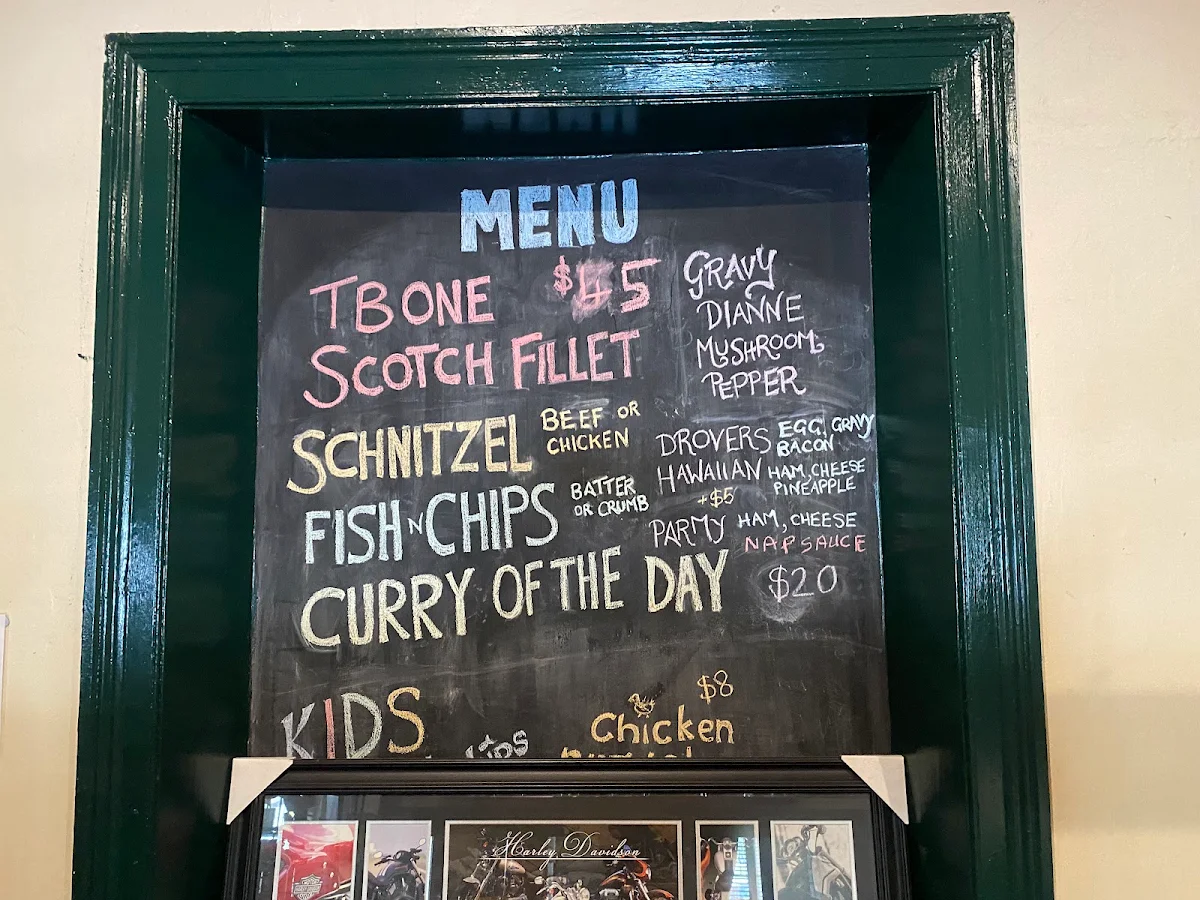 MENU
TBONE $45
SCOTCH FILLET
GRAVY
DIANNE
MUSHROOM
PEPPER
SCHNITZEL BEEF OR
CHICKEN
FISH N CHIPS BATTER
OR CRUMB
CURRY OF THE DAY
DROVERS EGG, GRAVY
BACON
HAWAIIAN HAM, CHEESE
PINEAPPLE
+$5
PARMY HAM, CHEESE
NAP SAUCE
$20
KIDS
$8
Chicken
Harley Davidson